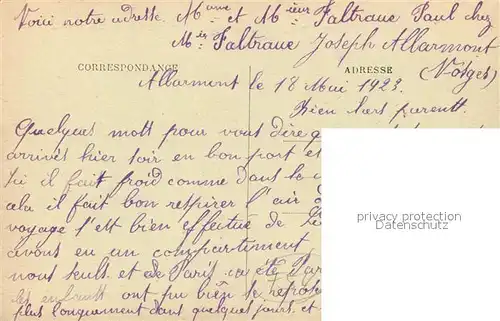 Voici notre adresse. Mme et Mieur Faltraue Paul chez
Mis Faltraue Joseph Allarmont
(Vosges)
CORRESPONDANCE
ADRESSE
Allarmont le 18 Mai 1923.
Bien chers parents.
Quelques mots pour vous dire q
arrivés hier soir en bon port et
Ici il fait froid comme dans le
cela il fait bon respirer l'air
voyage s'est bien effectué de
avons eu un compartiment
nous seuls. et de Paris ca été
les enfants ont pu bien se repose
plus longuement dans quelques jours. et
privacy protection
Datenschutz